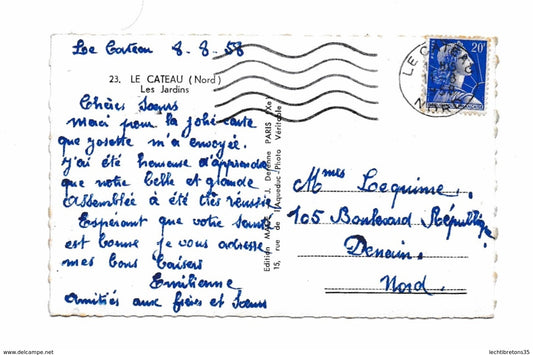 Le Cateau 8-8-58
23. LE CATEAU (Nord)
Les Jardins
Chères Sœurs
merci pour la jolie carte
que Josette m'a envoyée.
J'ai été heureuse d'apprendre
que notre belle et grande
Assemblée à été très réussie
Espérant que votre santé
est bonne je vous adresse
mes bons baisers
Emilienne
Amitiés aux frères et Sœurs
Edition J. Derenne PARIS (Xe)
15, rue de l'Aqueduc - Photo Véritable
LE CATEAU
NORD
20F
Mmes Lequime.
105 Boulevard République
Denain.
Nord.
http://www.delcampe.net
lechtibretons35